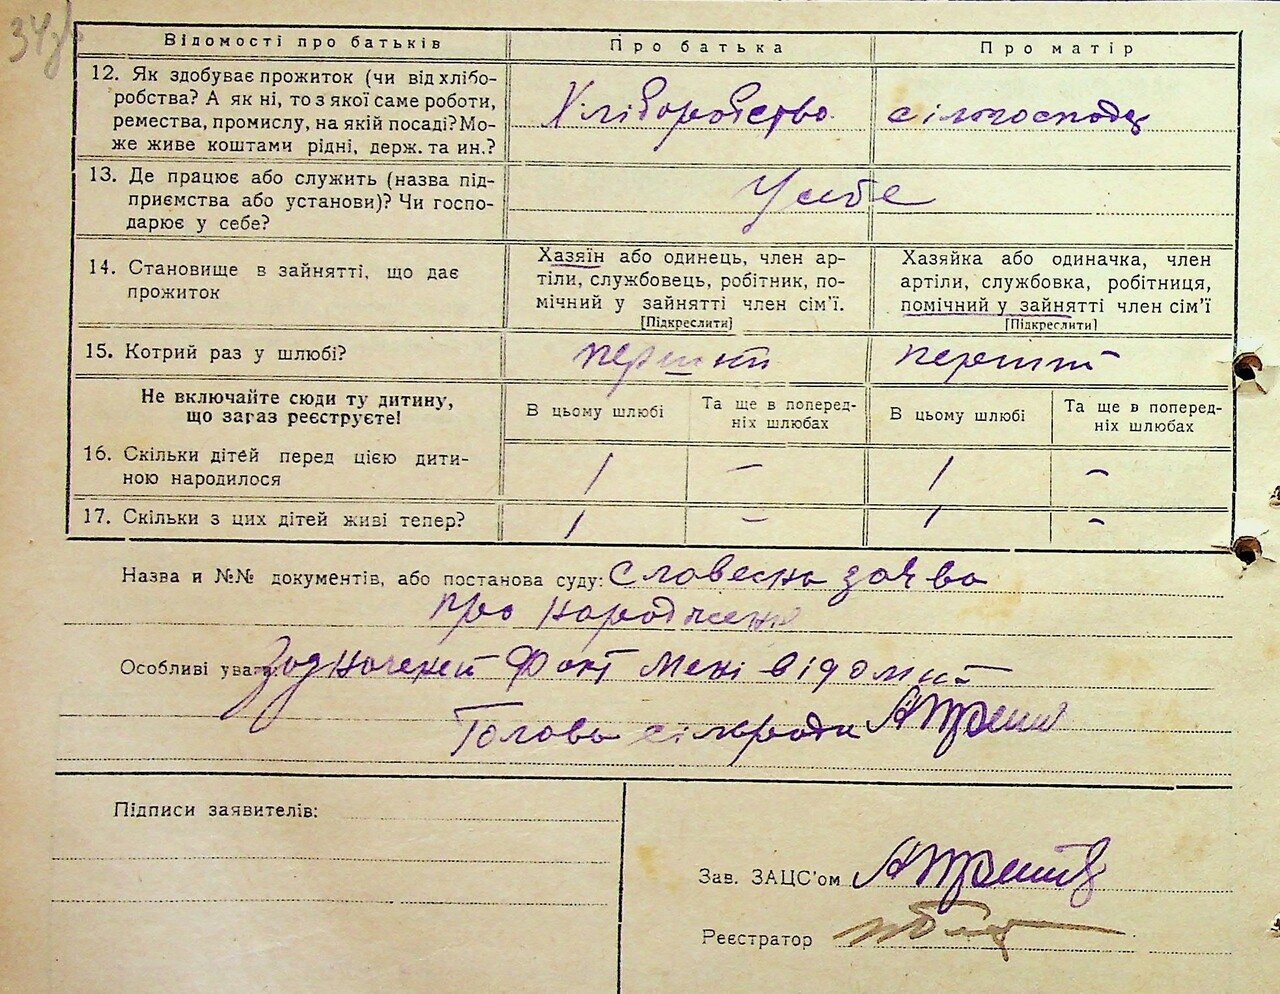 34зв
Відомості про батьків
Про батька
Про матір
12. Як здобуває прожиток (чи від хлібо-
робства? А як ні, то з якої саме роботи,
ремества, промислу, на якій посаді? Мо-
же живе коштами рідні, держ. та ин.?
Хліборобство
сільгосподар
13. Де працює або служить (назва під-
приємства або установи)? Чи госпо-
дарює у себе?
У себе
14. Становище в зайнятті, що дає
прожиток
Хазяїн або одинець, член ар-
тіли, службовець, робітник, по-
мічний у зайнятті член сім’ї.
[Підкреслити]
Хазяйка або одиначка, член
артіли, службовка, робітниця,
помічний у зайнятті член сім’ї
[Підкреслити]
15. Котрий раз у шлюбі?
перший
перший
Не включайте сюди ту дитину,
що зараз реєструєте!
В цьому шлюбі
Та ще в поперед-
ніх шлюбах
В цьому шлюбі
Та ще в поперед-
ніх шлюбах
16. Скільки дітей перед цією дити-
ною народилося
1 – 1 –
17. Скільки з цих дітей живі тепер?
1 – 1 –
Назва и №№ документів, або постанова суду: Словесна заява
про народження
Особливі уваги Зазначений факт мені відомий
Голова сільради
Підписи заявителів:
Зав. ЗАЦС’ом
Реєстратор